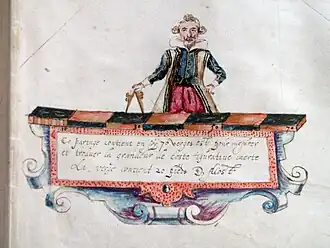 Ce partage contient en soy 70 verges est pour mesurer
et trouver la grandeur de ceste figurative carte
La verge contient 20 pieds D'Alost